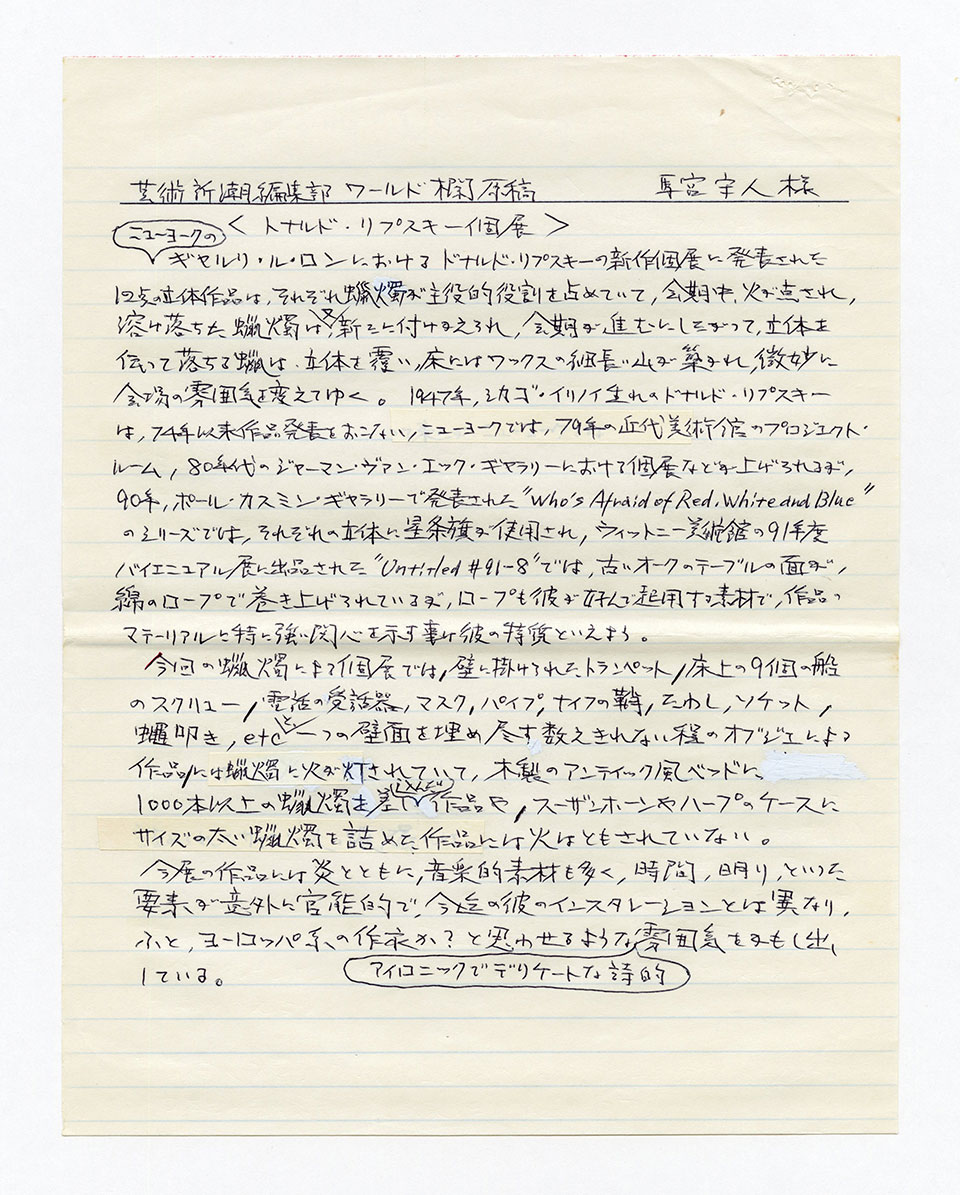 芸術新潮編集部 ワールド欄原稿 宮宇人様
ニューヨークの 〈 トナルド・リプスキー個展 〉
ギャルリ・ル・ロンにおける ドナルド・リプスキーの新作個展に発表された
12点の立体作品は,それぞれ蠟燭が主役的役割を占めていて,会期中,火が点され,
溶け落ちた蠟燭は又新たに付けかえられ,会期が進むにしたがって,立体を
伝って落ちる蠟は,立体を覆い,床にはワックスの細長い山が築かれ,微妙に
会場の雰囲気を変えてゆく。 1947年,シカゴ・イリノイ生れのドナルド・リプスキー
は,74年以来作品発表をおこない,ニューヨークでは,79年の近代美術館のプロジェクト・
ルーム,80年代のジャーマン・ヴァン・エック・ギャラリーにおける個展などが上げられるが,
90年,ポール・カスミン・ギャラリーで発表された"Who's Afraid of Red, White and Blue"
のシリーズでは,それぞれの立体に星条旗が使用され,ウィットニー美術館の91年度
バイエニュアル展に出品された"Untitled #91-8"では,古いオークのテーブルの面が,
綿のロープで巻き上げられているが,ロープも彼が好んで起用する素材で,作品の
マテーリアルに特に強い関心を示す事は彼の特質といえよう。
今回の蠟燭による個展では,壁に掛けられたトランペット,床上の9個の船
のスクリュー,電話の受話器,マスク,パイプ,ナイフの鞘,たわし,ソケット,
蠅叩き,etcと,一つの壁面を埋め尽す数えきれない程のオブジェによる
作品には蠟燭に火が灯されていて,木製のアンティック風ベッドに
1000本以上の蠟燭を差し込んだ作品や,スーザンホーンやハープのケースに
サイズの太い蠟燭を詰めた作品には火はともされていない。
今展の作品には炎とともに,音楽的素材も多く,時間,明り,といった
要素が意外に官能的で,今迄の彼のインスタレーションとは異なり,
ふと,ヨーロッパ系の作家か?と思わせるような雰囲気をかもし出
している。 アイロニックでデリケートな詩的